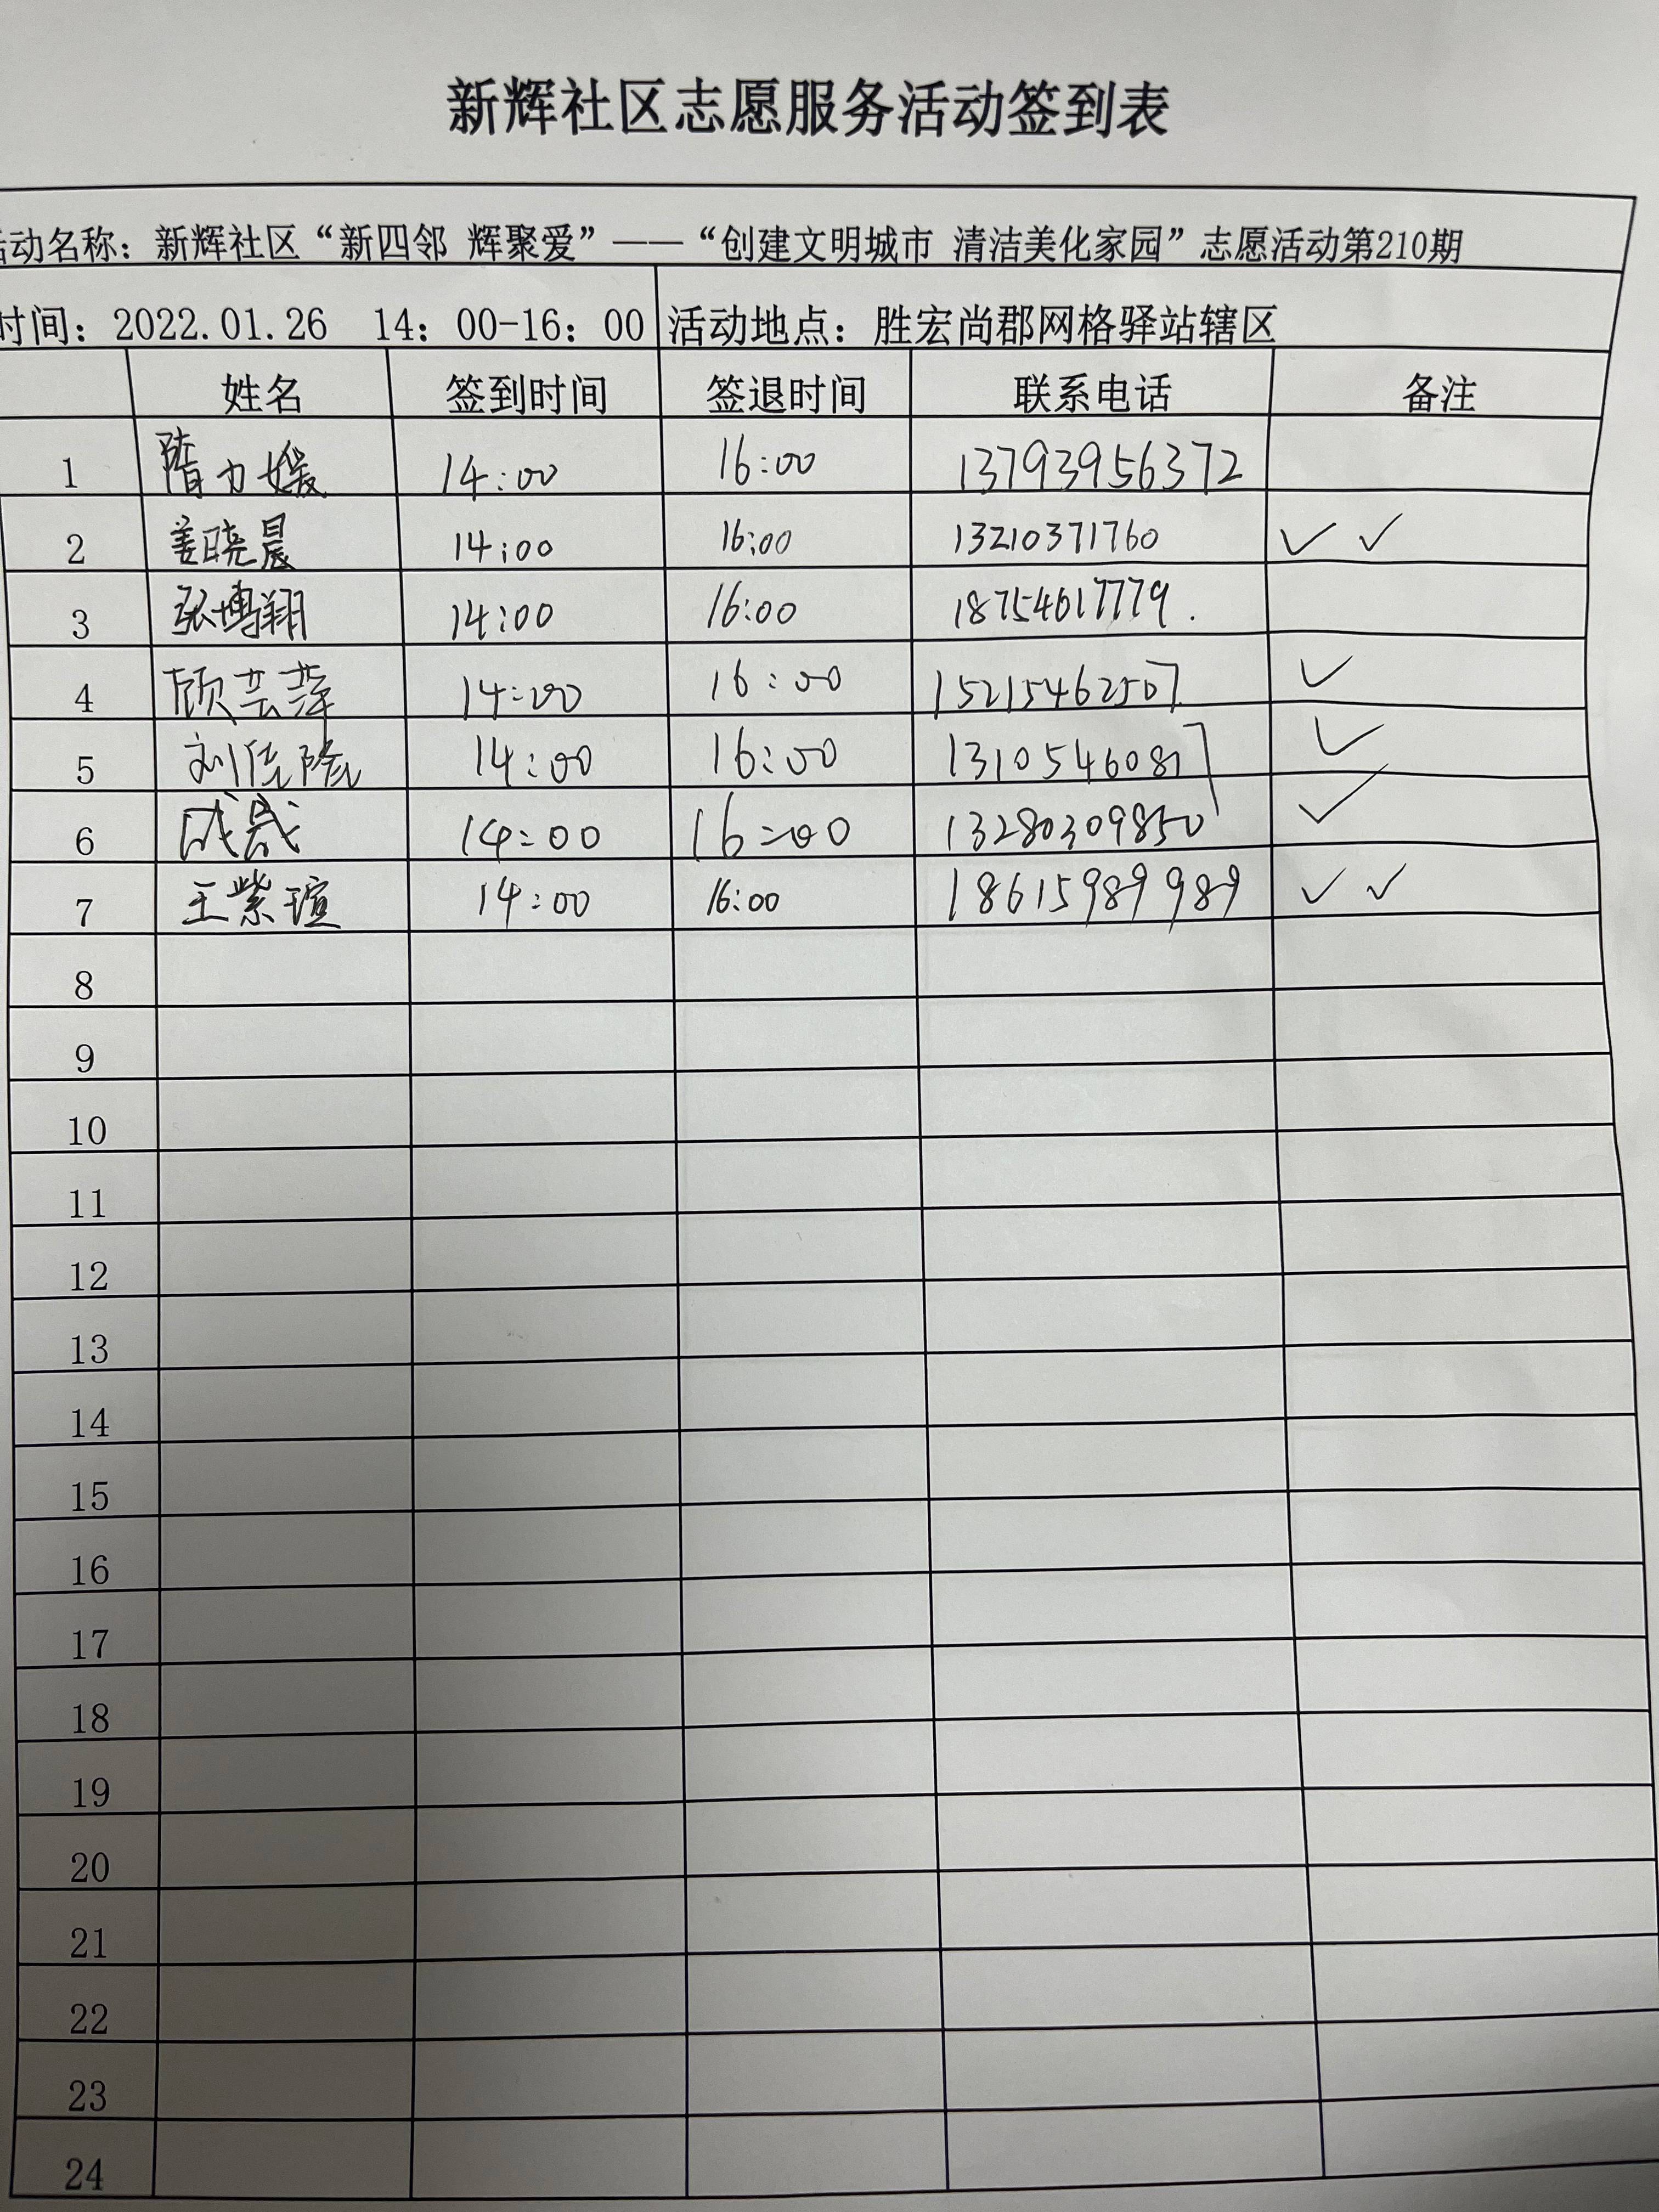 新辉社区志愿服务活动签到表
活动名称：新辉社区“新四邻 辉聚爱”——“创建文明城市 清洁美化家园”志愿活动第210期
时间：2022.01.26 14：00-16：00 活动地点：胜宏尚郡网格驿站辖区
姓名 签到时间 签退时间 联系电话 备注
1 隋力媛 14:00 16:00 13793956372
2 姜晓晨 14:00 16:00 13210371760 ✓ ✓
3 张博翔 14:00 16:00 18754617779.
4 顾芸萍 14:00 16:00 15215462507 ✓
5 刘佳隆 14:00 16:00 13105460817 ✓
6 成晟 14:00 16:00 13280309850 ✓
7 王紫瑄 14:00 16:00 18615989989 ✓ ✓
8
9
10
11
12
13
14
15
16
17
18
19
20
21
22
23
24